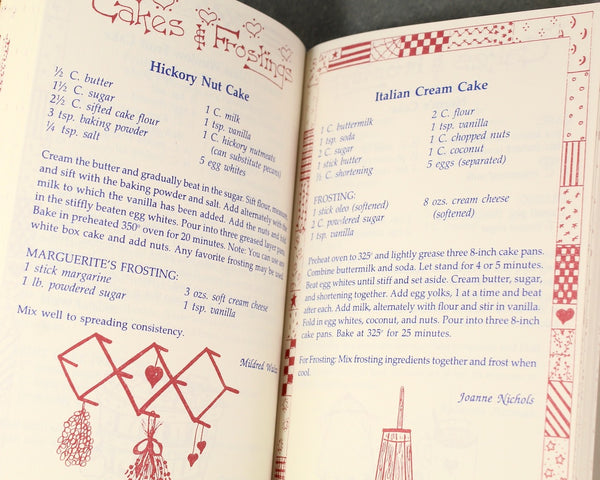 Cakes & Frostings
Hickory Nut Cake
½ C. butter
1½ C. sugar
2½ C. sifted cake flour
3 tsp. baking powder
¼ tsp. salt
1 C. milk
1 tsp. vanilla
1 C. hickory nutmeats
(can substitute pecans)
5 egg whites
Cream the butter and gradually beat in the sugar. Sift flour, measure,
and sift with the baking powder and salt. Add alternately with the
milk to which the vanilla has been added. Add the nuts and fold
in the stiffly beaten egg whites. Pour into three greased layer pans.
Bake in preheated 350° oven for 20 minutes. Note: You can use any
white box cake and add nuts. Any favorite frosting may be used.
MARGUERITE'S FROSTING:
1 stick margarine
1 lb. powdered sugar
3 ozs. soft cream cheese
1 tsp. vanilla
Mix well to spreading consistency.
Mildred
Italian Cream Cake
1 C. buttermilk
1 tsp. soda
2 C. sugar
1 stick butter
½ C. shortening
2 C. flour
1 tsp. vanilla
1 C. chopped nuts
1 C. coconut
5 eggs (separated)
FROSTING:
1 stick oleo (softened)
2 C. powdered sugar
1 tsp. vanilla
8 ozs. cream cheese
(softened)
Preheat oven to 325° and lightly grease three 8-inch cake pans.
Combine buttermilk and soda. Let stand for 4 or 5 minutes.
Beat egg whites until stiff and set aside. Cream butter, sugar,
and shortening together. Add egg yolks, 1 at a time and beat
after each. Add milk, alternately with flour and stir in vanilla.
Fold in egg whites, coconut, and nuts. Pour into three 8-inch
cake pans. Bake at 325° for 25 minutes.
For Frosting: Mix frosting ingredients together and frost when
cool.
Joanne Nichols